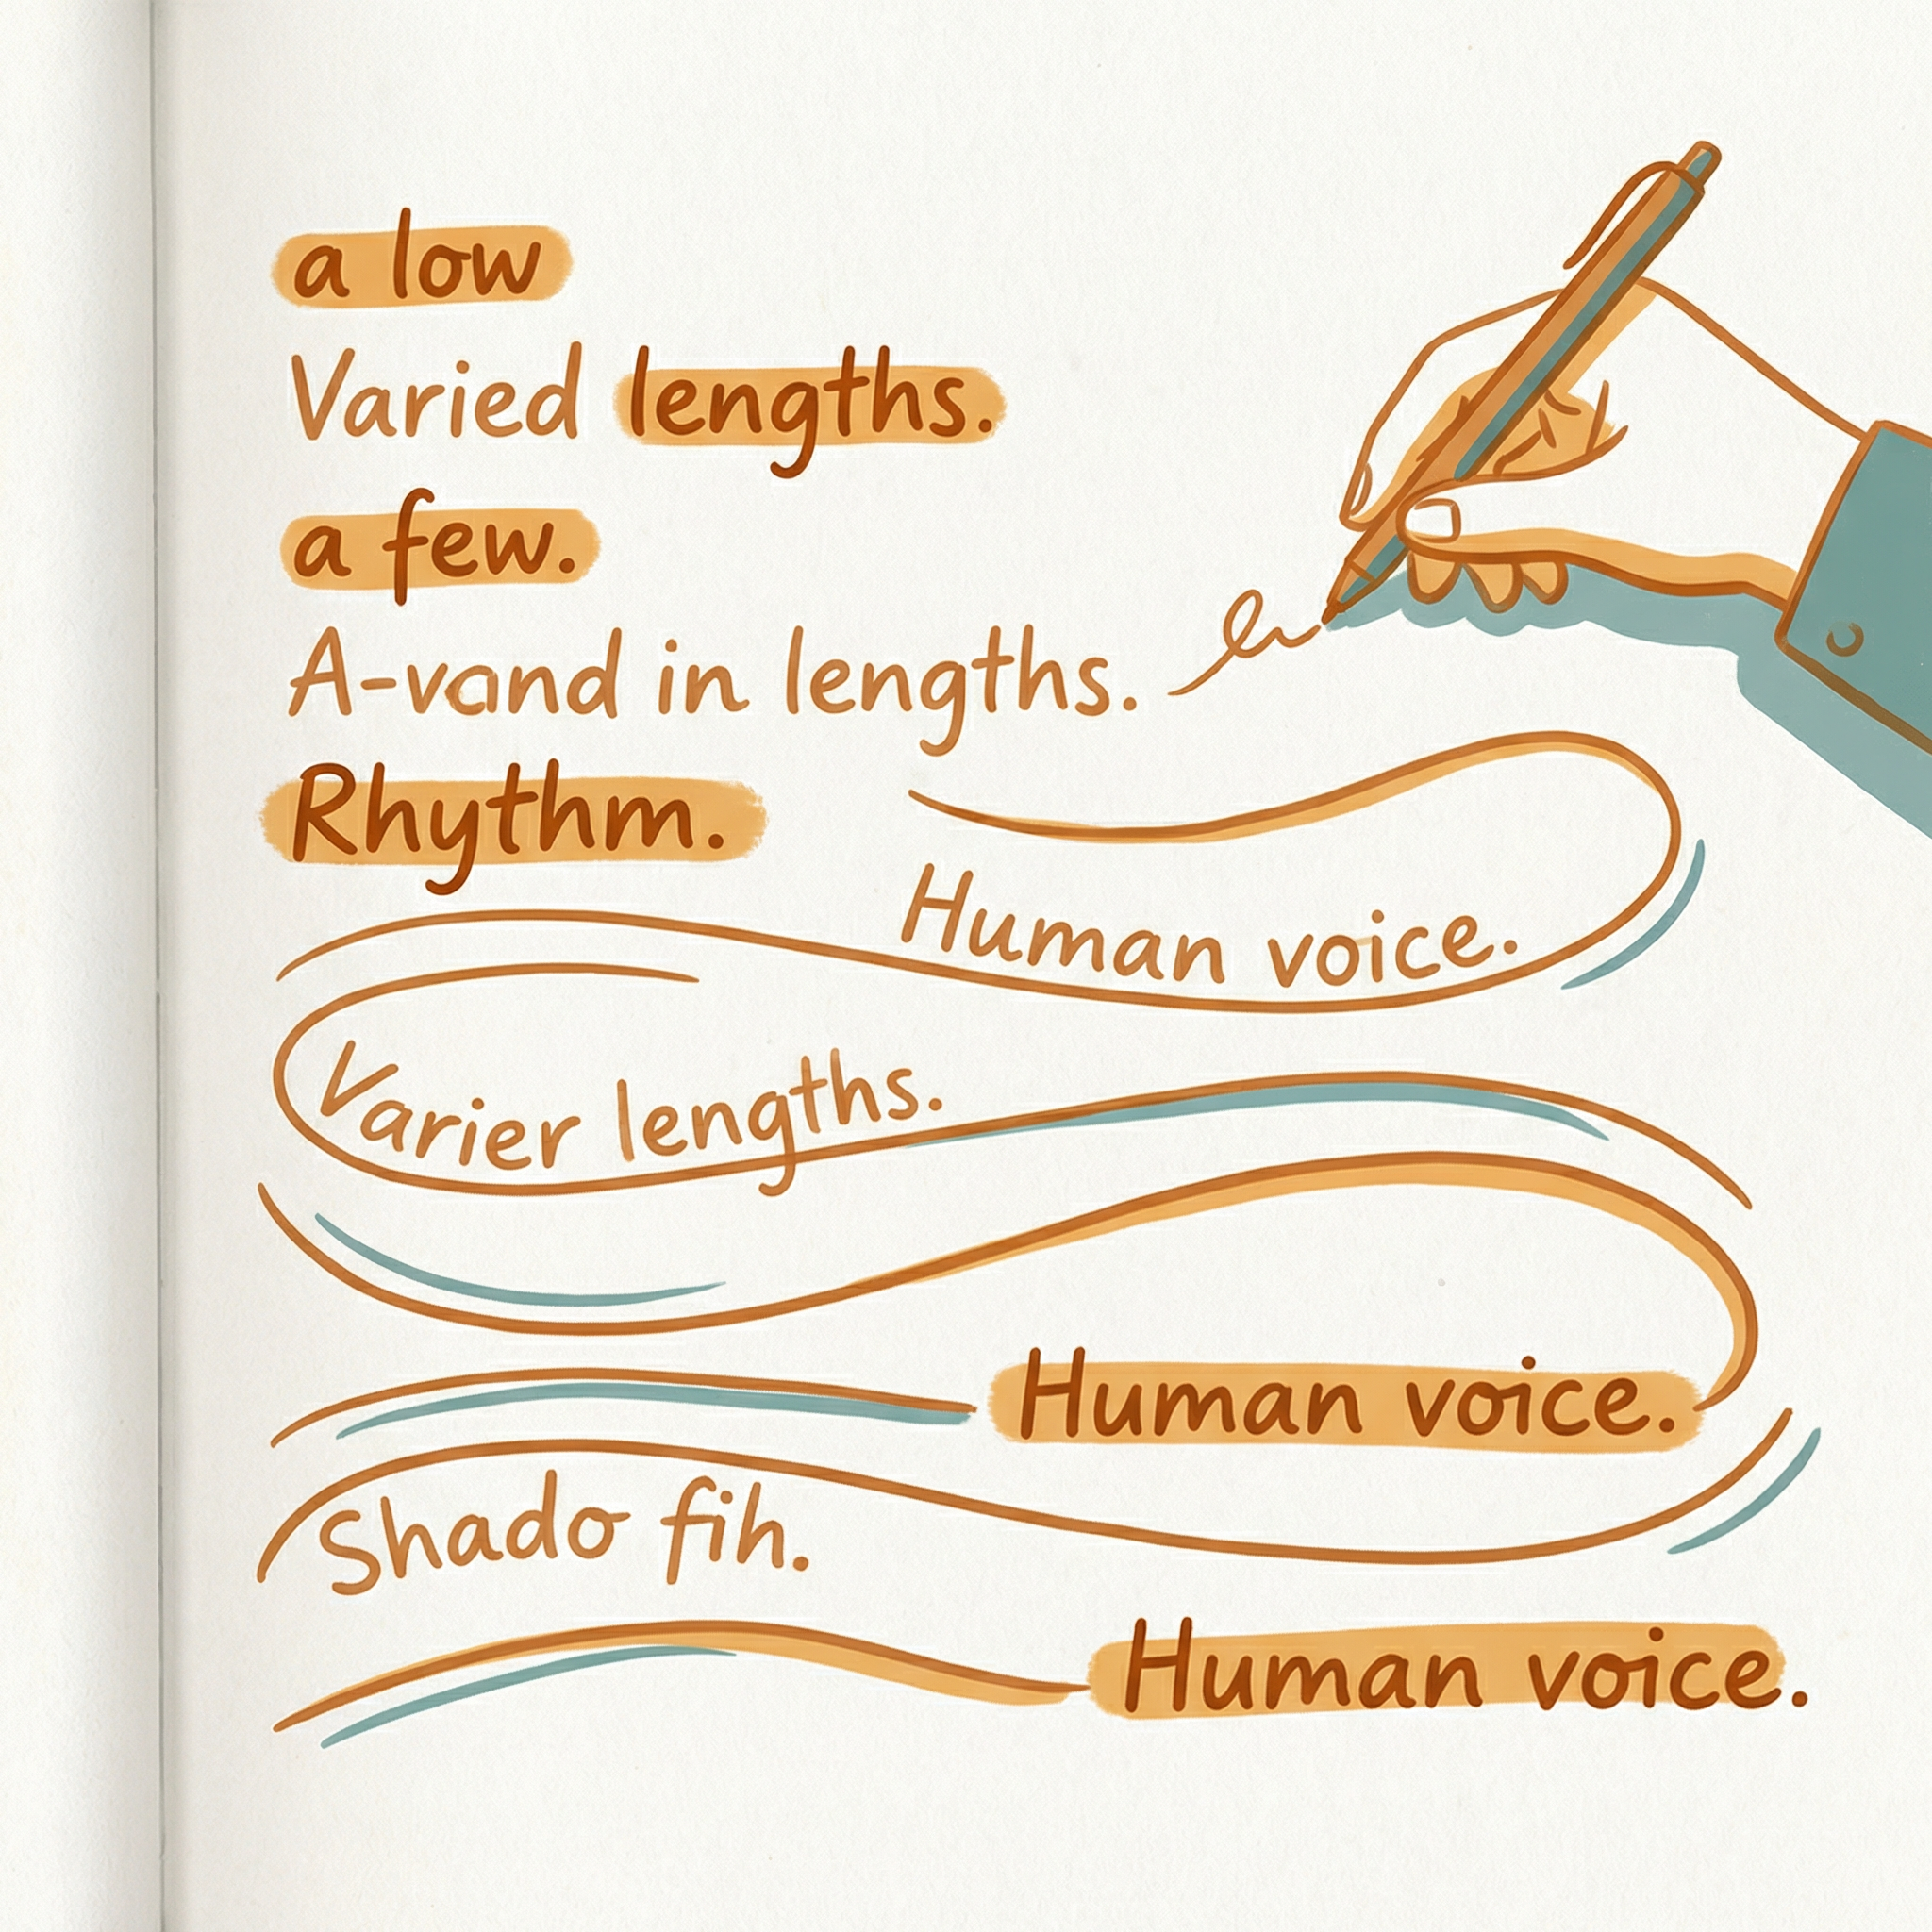 a low
Varied lengths.
a few.
A-vand in lengths.
Rhythm.
Human voice.
Varier lengths.
Human voice.
Shado fih.
Human voice.